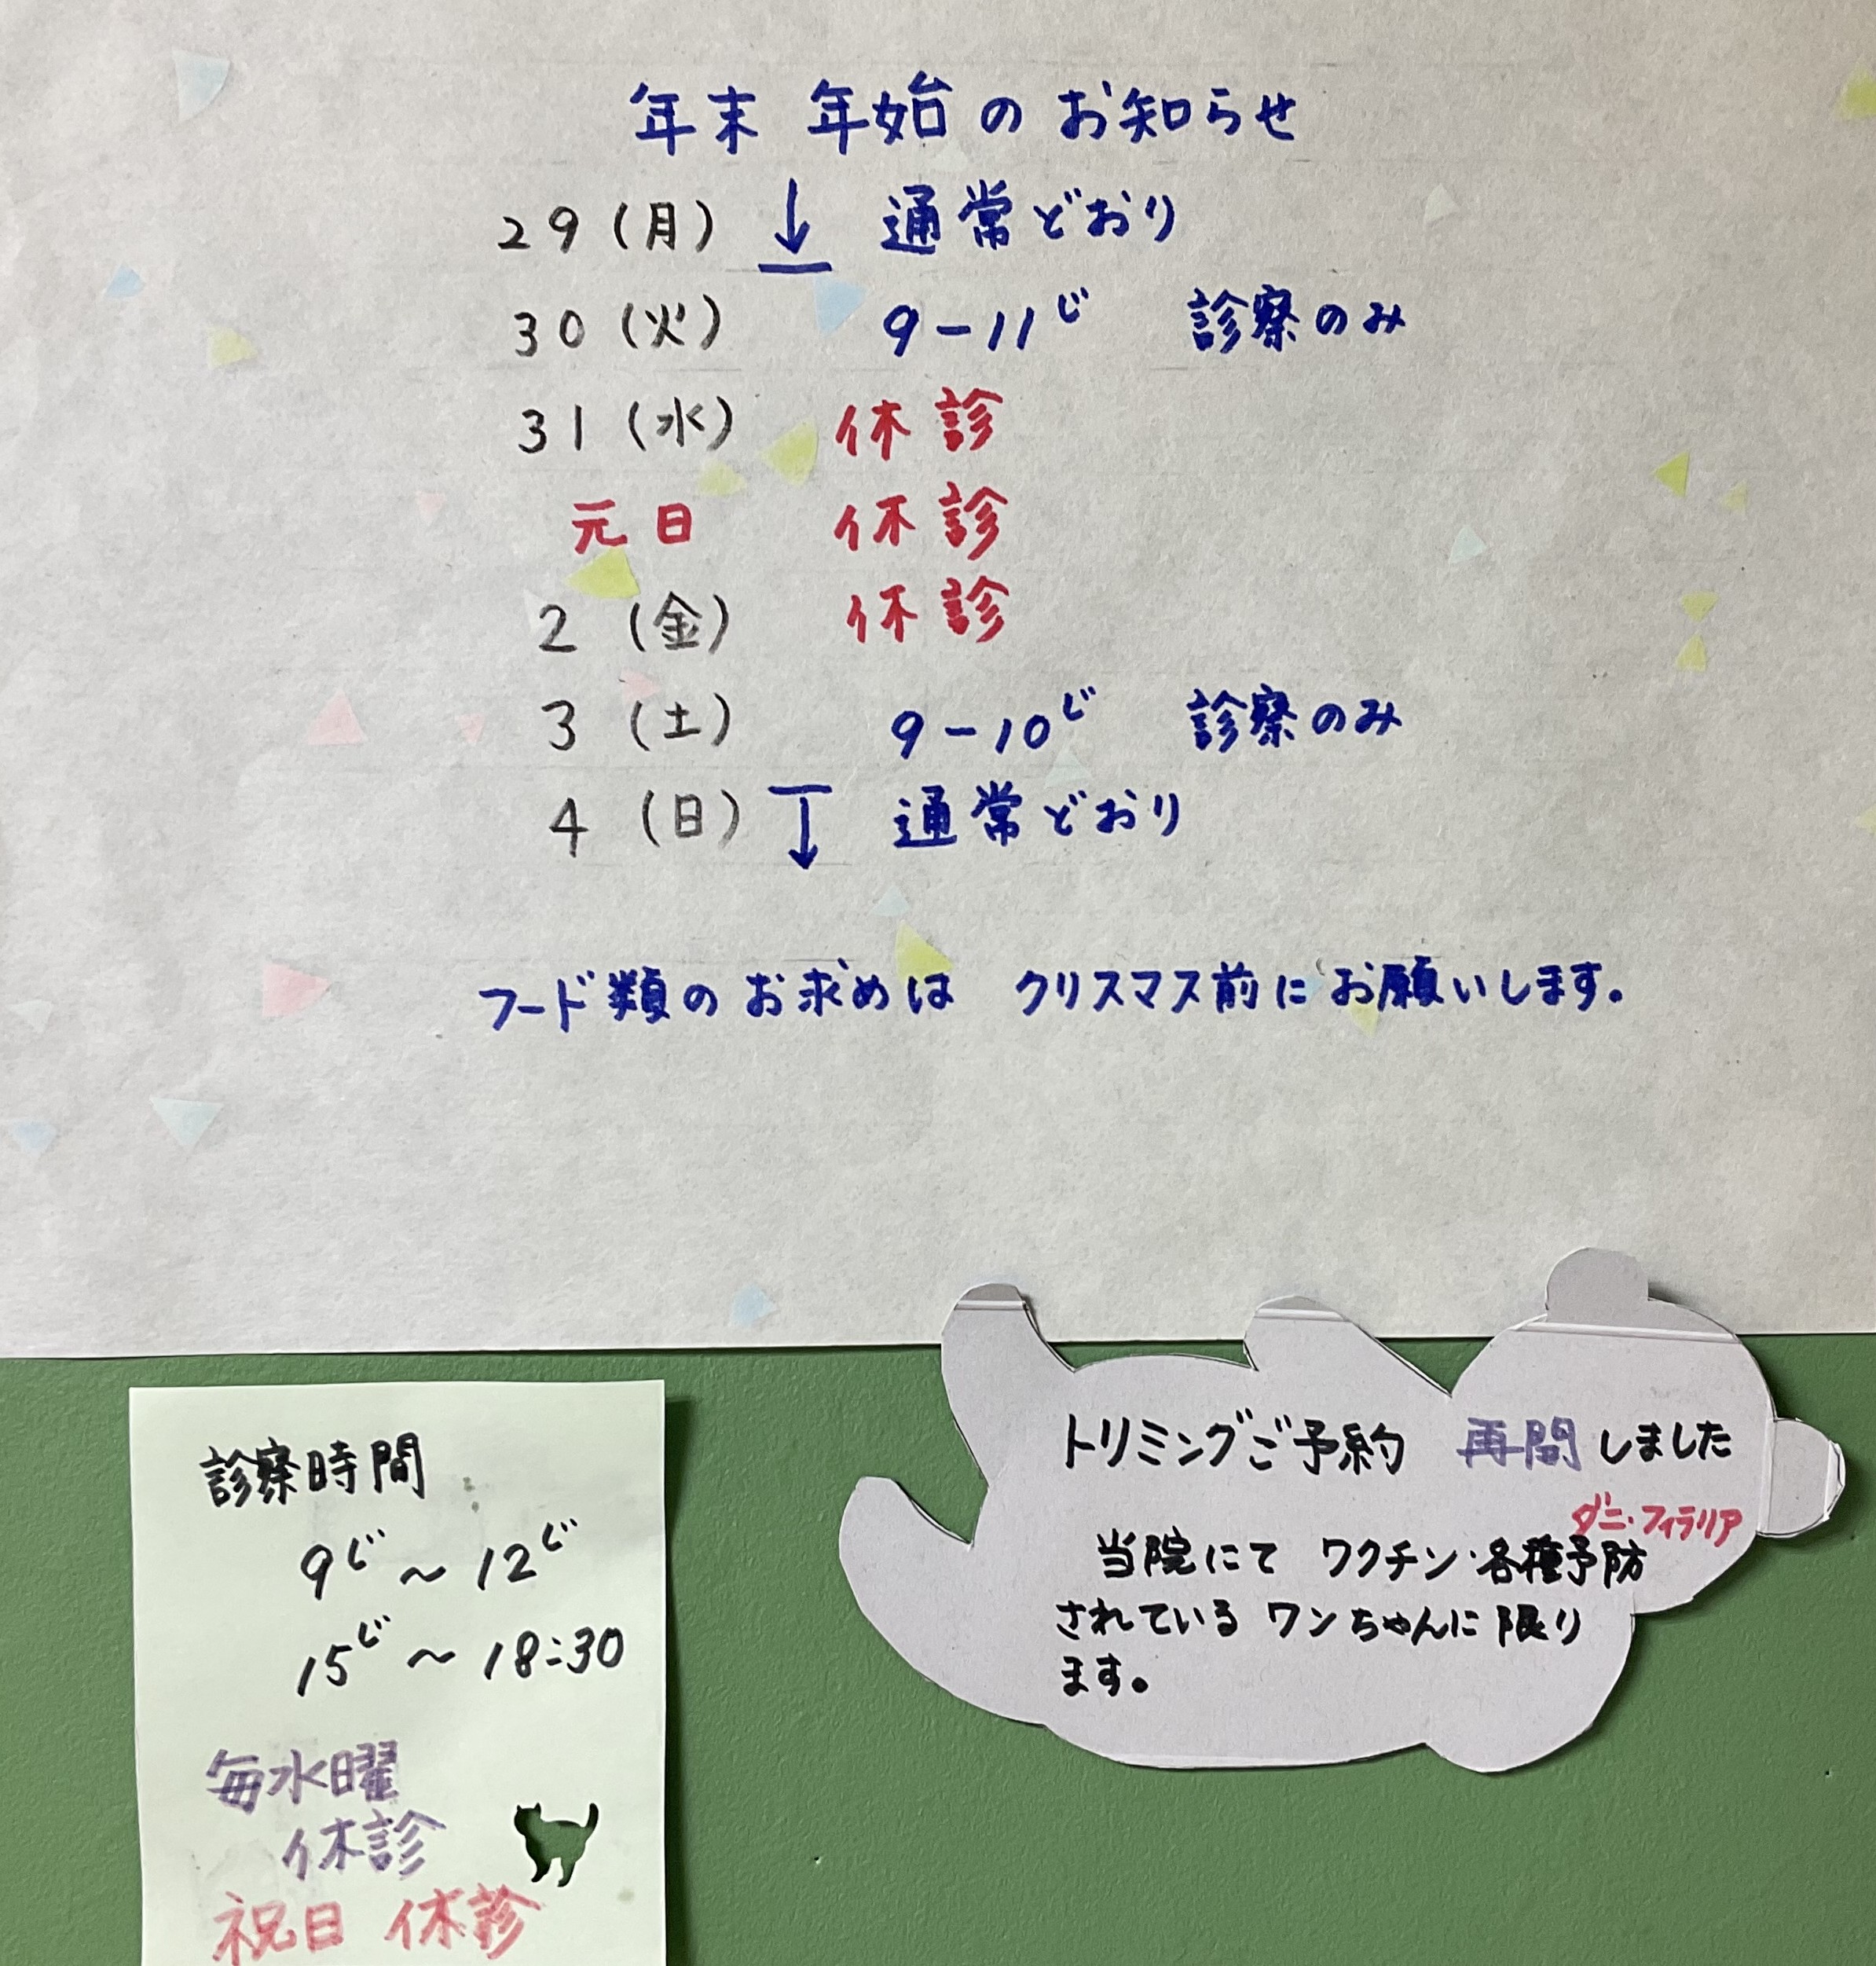 年末 年始のお知らせ
29(月) ↓ 通常どおり
30(火) 9-11じ 診察のみ
31(水) 休診
元日 休診
2(金) 休診
3(土) 9-10じ 診察のみ
4(日) ↓ 通常どおり
フード類のお求めは クリスマス前にお願いします。
診察時間
9じ～12じ
15じ～18:30
毎水曜
休診
祝日 休診
トリミングご予約 再開しました
ダニ・フィラリア
当院にて ワクチン・各種予防
されている ワンちゃんに限り
ます。